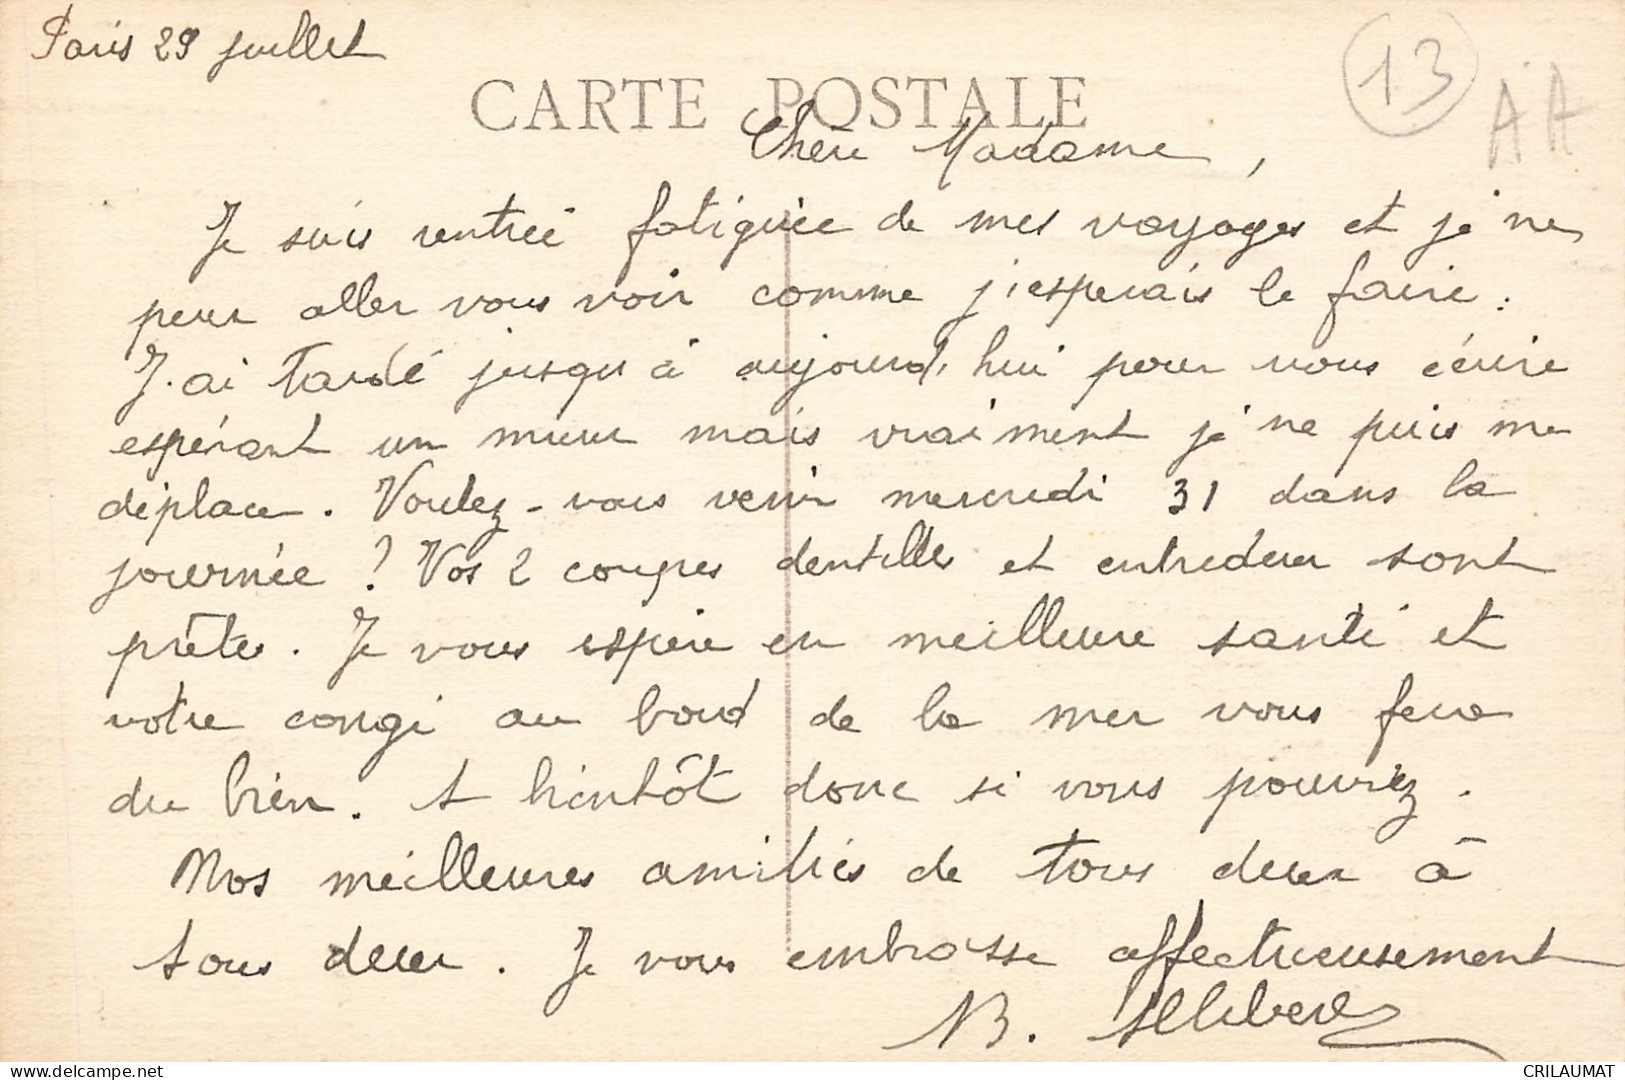 Paris 29 juillet
CARTE POSTALE
13
AA
Chère Madame,
Je suis rentrée fatiguée de mes voyages et je ne
peux aller vous voir comme j'espérais le faire.
J'ai tardé jusqu'à aujourd'hui pour vous écrire
espérant un mieux mais vraiment je ne puis me
déplacer. Voulez-vous venir mercredi 31 dans la
journée ? Vos 2 coupes dentelles et entredeux sont
prêtes. Je vous espère en meilleure santé et
votre congé au bord de la mer vous fera
du bien. A bientôt donc si vous pouviez.
Nos meilleures amitiés de tous deux à
tous deux. Je vous embrasse affectueusement
B.
delcampe.net
CRILAUMAT